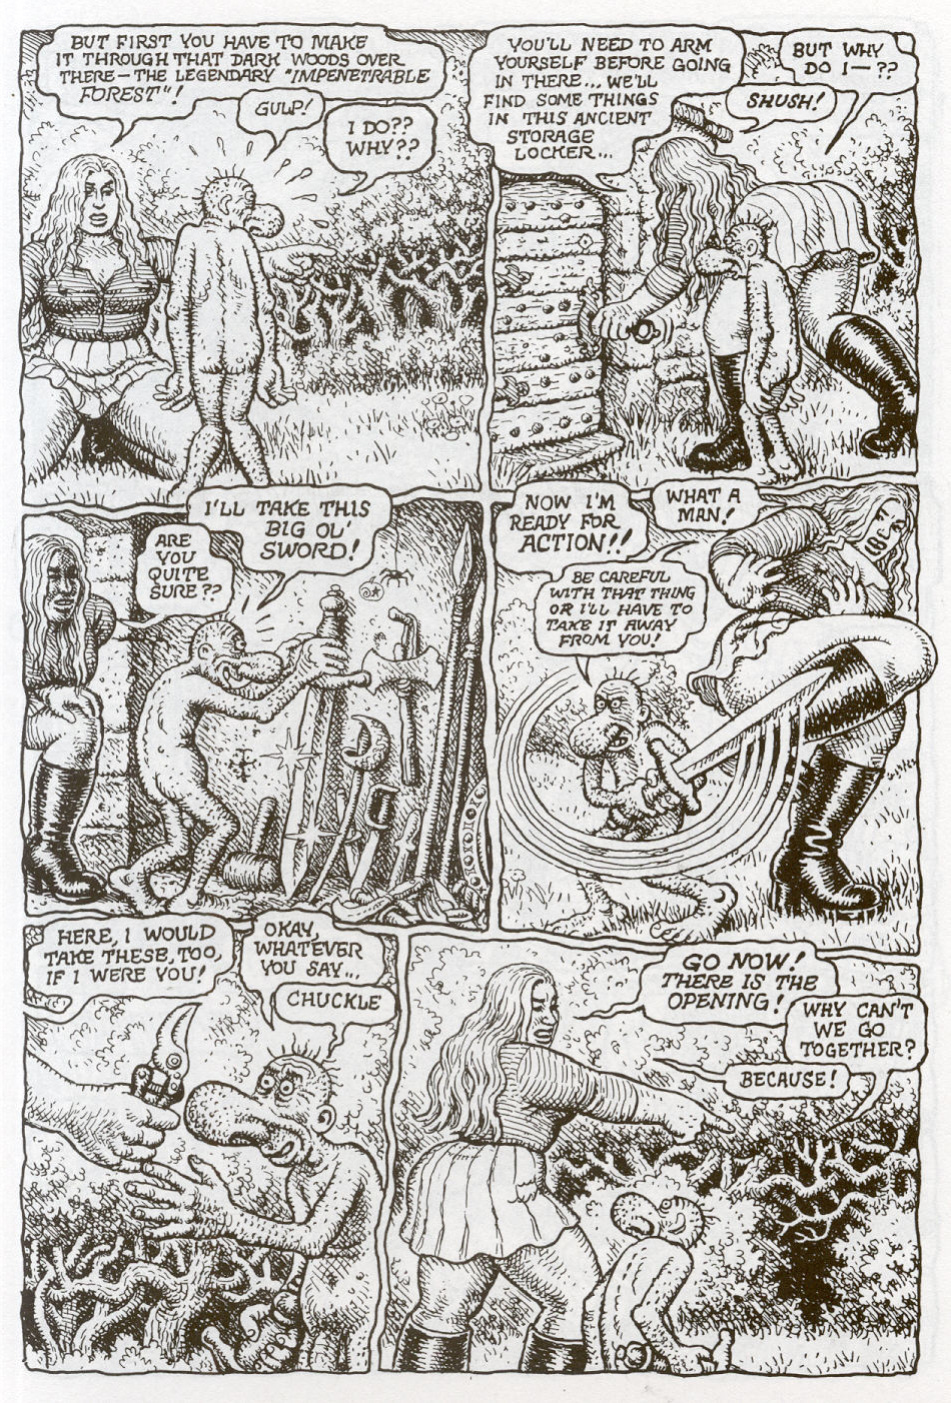 BUT FIRST YOU HAVE TO MAKE
IT THROUGH THAT DARK WOODS OVER
THERE — THE LEGENDARY "IMPENETRABLE
FOREST"!
GULP!
I DO??
WHY??
YOU'LL NEED TO ARM
YOURSELF BEFORE GOING
IN THERE... WE'LL
FIND SOME THINGS
IN THIS ANCIENT
STORAGE
LOCKER...
BUT WHY
DO I — ??
SHUSH!
I'LL TAKE THIS
BIG OL'
SWORD!
ARE
YOU
QUITE
SURE??
NOW I'M
READY FOR
ACTION!!
WHAT A
MAN!
BE CAREFUL
WITH THAT THING
OR I'LL HAVE TO
TAKE IT AWAY
FROM YOU!
HERE, I WOULD
TAKE THESE, TOO,
IF I WERE YOU!
OKAY,
WHATEVER
YOU SAY...
CHUCKLE
GO NOW!
THERE IS THE
OPENING!
WHY CAN'T
WE GO
TOGETHER?
BECAUSE!